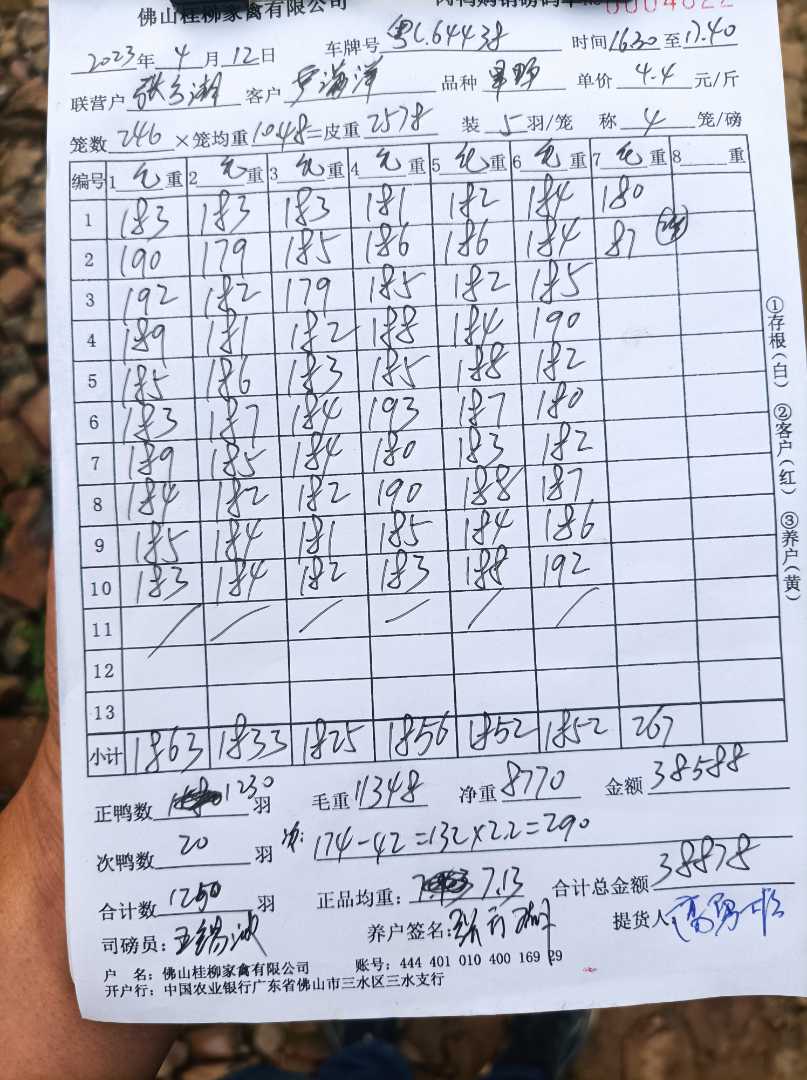 佛山桂柳家禽有限公司
2023年 4 月 12 日 车牌号 粤C.64438 时间 1630 至 17.40
联营户 客户 品种 单价 4.4 元/斤
笼数 246 ×笼均重 10.48 =皮重 2578 装 5 羽/笼 称 4 笼/磅
编号 1 毛 重 2 毛 重 3 毛 重 4 毛 重 5 毛 重 6 毛 重 7 毛 重 8 重
1 183 183 183 181 182 184 180
2 190 179 185 186 186 184 87
3 192 182 179 185 182 185
4 189 181 182 188 184 190
5 185 186 183 185 188 182
6 183 187 184 193 187 180
7 189 185 184 180 183 182
8 184 182 182 190 188 187
9 185 184 181 185 184 186
10 183 184 182 183 188 192
11 / / / / / /
12
13
小计 1863 1833 1825 1856 1852 1852 267
正鸭数 1230 羽 毛重 11348 净重 8770 金额 38588
次鸭数 20 羽 次: 174-42=132×2.2=290
合计数 1250 羽 正品均重: 7.13 合计总金额 38878
司磅员: 养户签名: 提货人
户 名: 佛山桂柳家禽有限公司 账号: 444 401 010 400 169 29
开户行: 中国农业银行广东省佛山市三水区三水支行
①存根(白) ②客户(红) ③养户(黄)